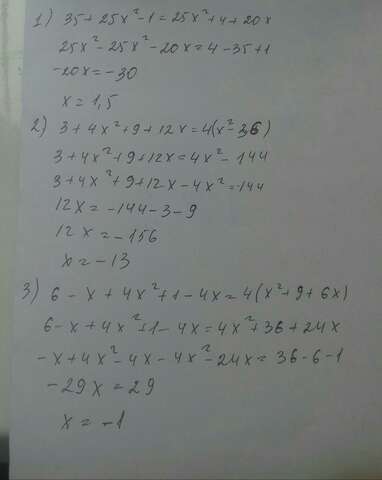 1) 35+25x²-1=25x²+4+20x
25x²-25x²-20x=4-35+1
-20x=-30
x=1,5
2) 3+4x²+9+12x=4(x²-36)
3+4x²+9+12x=4x²-144
3+4x²+9+12x-4x²=-144
12x=-144-3-9
12x=-156
x=-13
3) 6-x+4x²+1-4x=4(x²+9+6x)
6-x+4x²+1-4x=4x²+36+24x
-x+4x²-4x-4x²-24x=36-6-1
-29x=29
x=-1